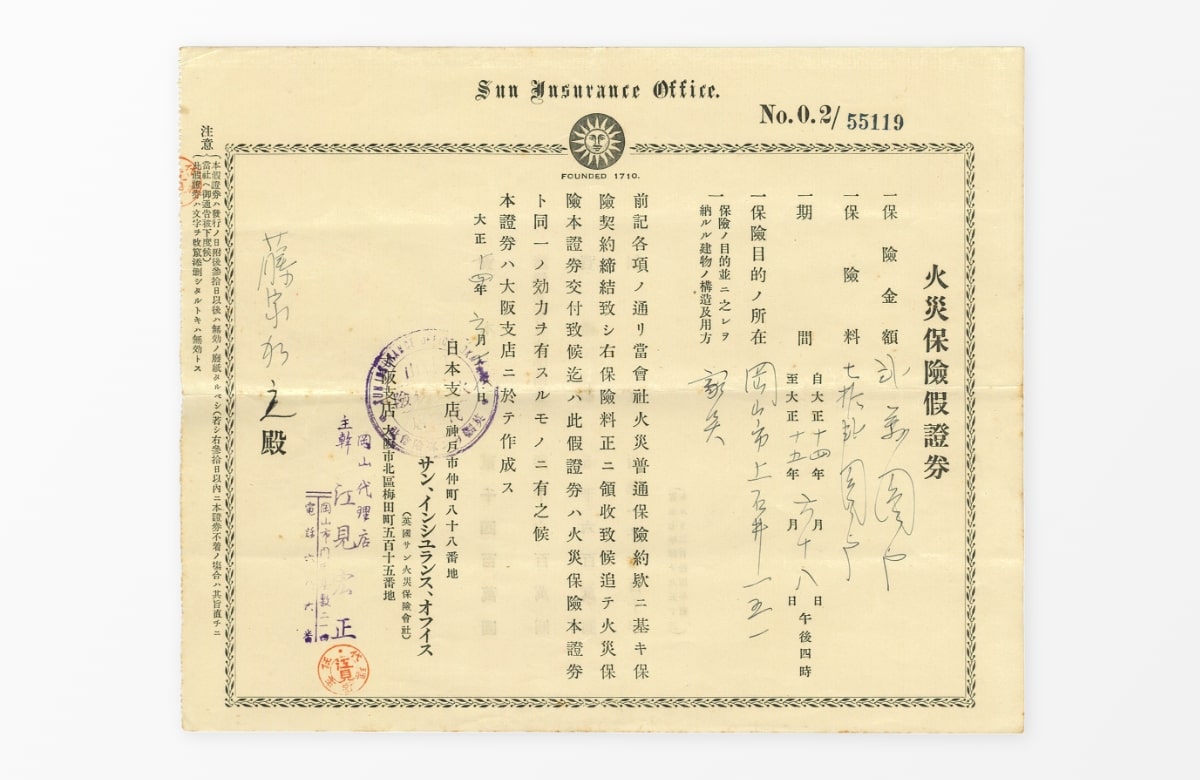 Sun Insurance Office.
No. 0. 2/ 55119
FOUNDED 1710.
火災保險假證券
一保險金額 弐萬圓也
一保險料 七拾弐圓也
一期間 自大正十四年 六月十八日 至大正十五年 午後四時
一保險目的ノ所在 岡山市上石井一五一
一保險ノ目的並ニ之レヲ
納ルル建物ノ構造及用方
前記各項ノ通リ當會社火災普通保險約欵ニ基キ保
險契約締結致シ右保險料正ニ領收致候追テ火災保
險本證券交付致候迄ハ此假證券ハ火災保險本證券
ト同一ノ効力ヲ有スルモノニ有之候
本證券ハ大阪支店ニ於テ作成ス
大正十四年 六月 日
サン、インシユランス、オフイス
(英國サン火災保險會社)
日本支店 神戸市仲町八十八番地
大阪支店 大阪市北區梅田町五百十五番地
岡山代理店
主幹 江見 正
岡山市
電話六 六番
殿
注意
本假證券ハ發行ノ日附後參拾日以後ハ無効ノ廢紙タルベシ(若シ右參拾日以内ニ本證券不着ノ塲合ハ其旨直チニ
當社ヘ御通告被下度候)
此假證券ハ文字ヲ改竄添刪シタルトキハ無効トス